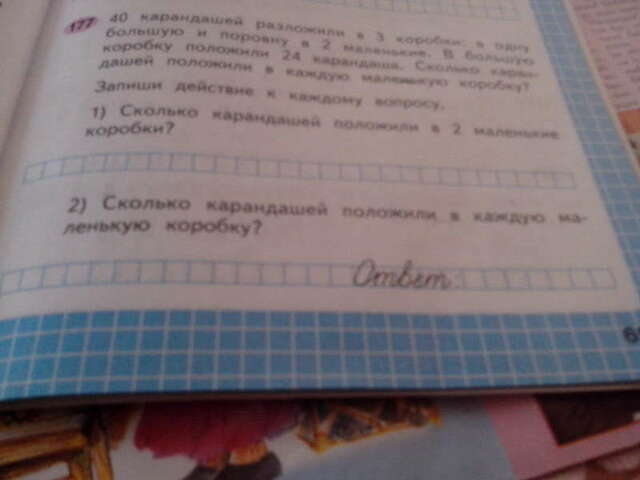 177 40 карандашей разложили в 3 коробки: в одну
большую и поровну в 2 маленькие. В большую
коробку положили 24 карандаша. Сколько каран-
дашей положили в каждую маленькую коробку?
Запиши действие к каждому вопросу.
1) Сколько карандашей положили в 2 маленькие
коробки?
2) Сколько карандашей положили в каждую ма-
ленькую коробку?
Ответ